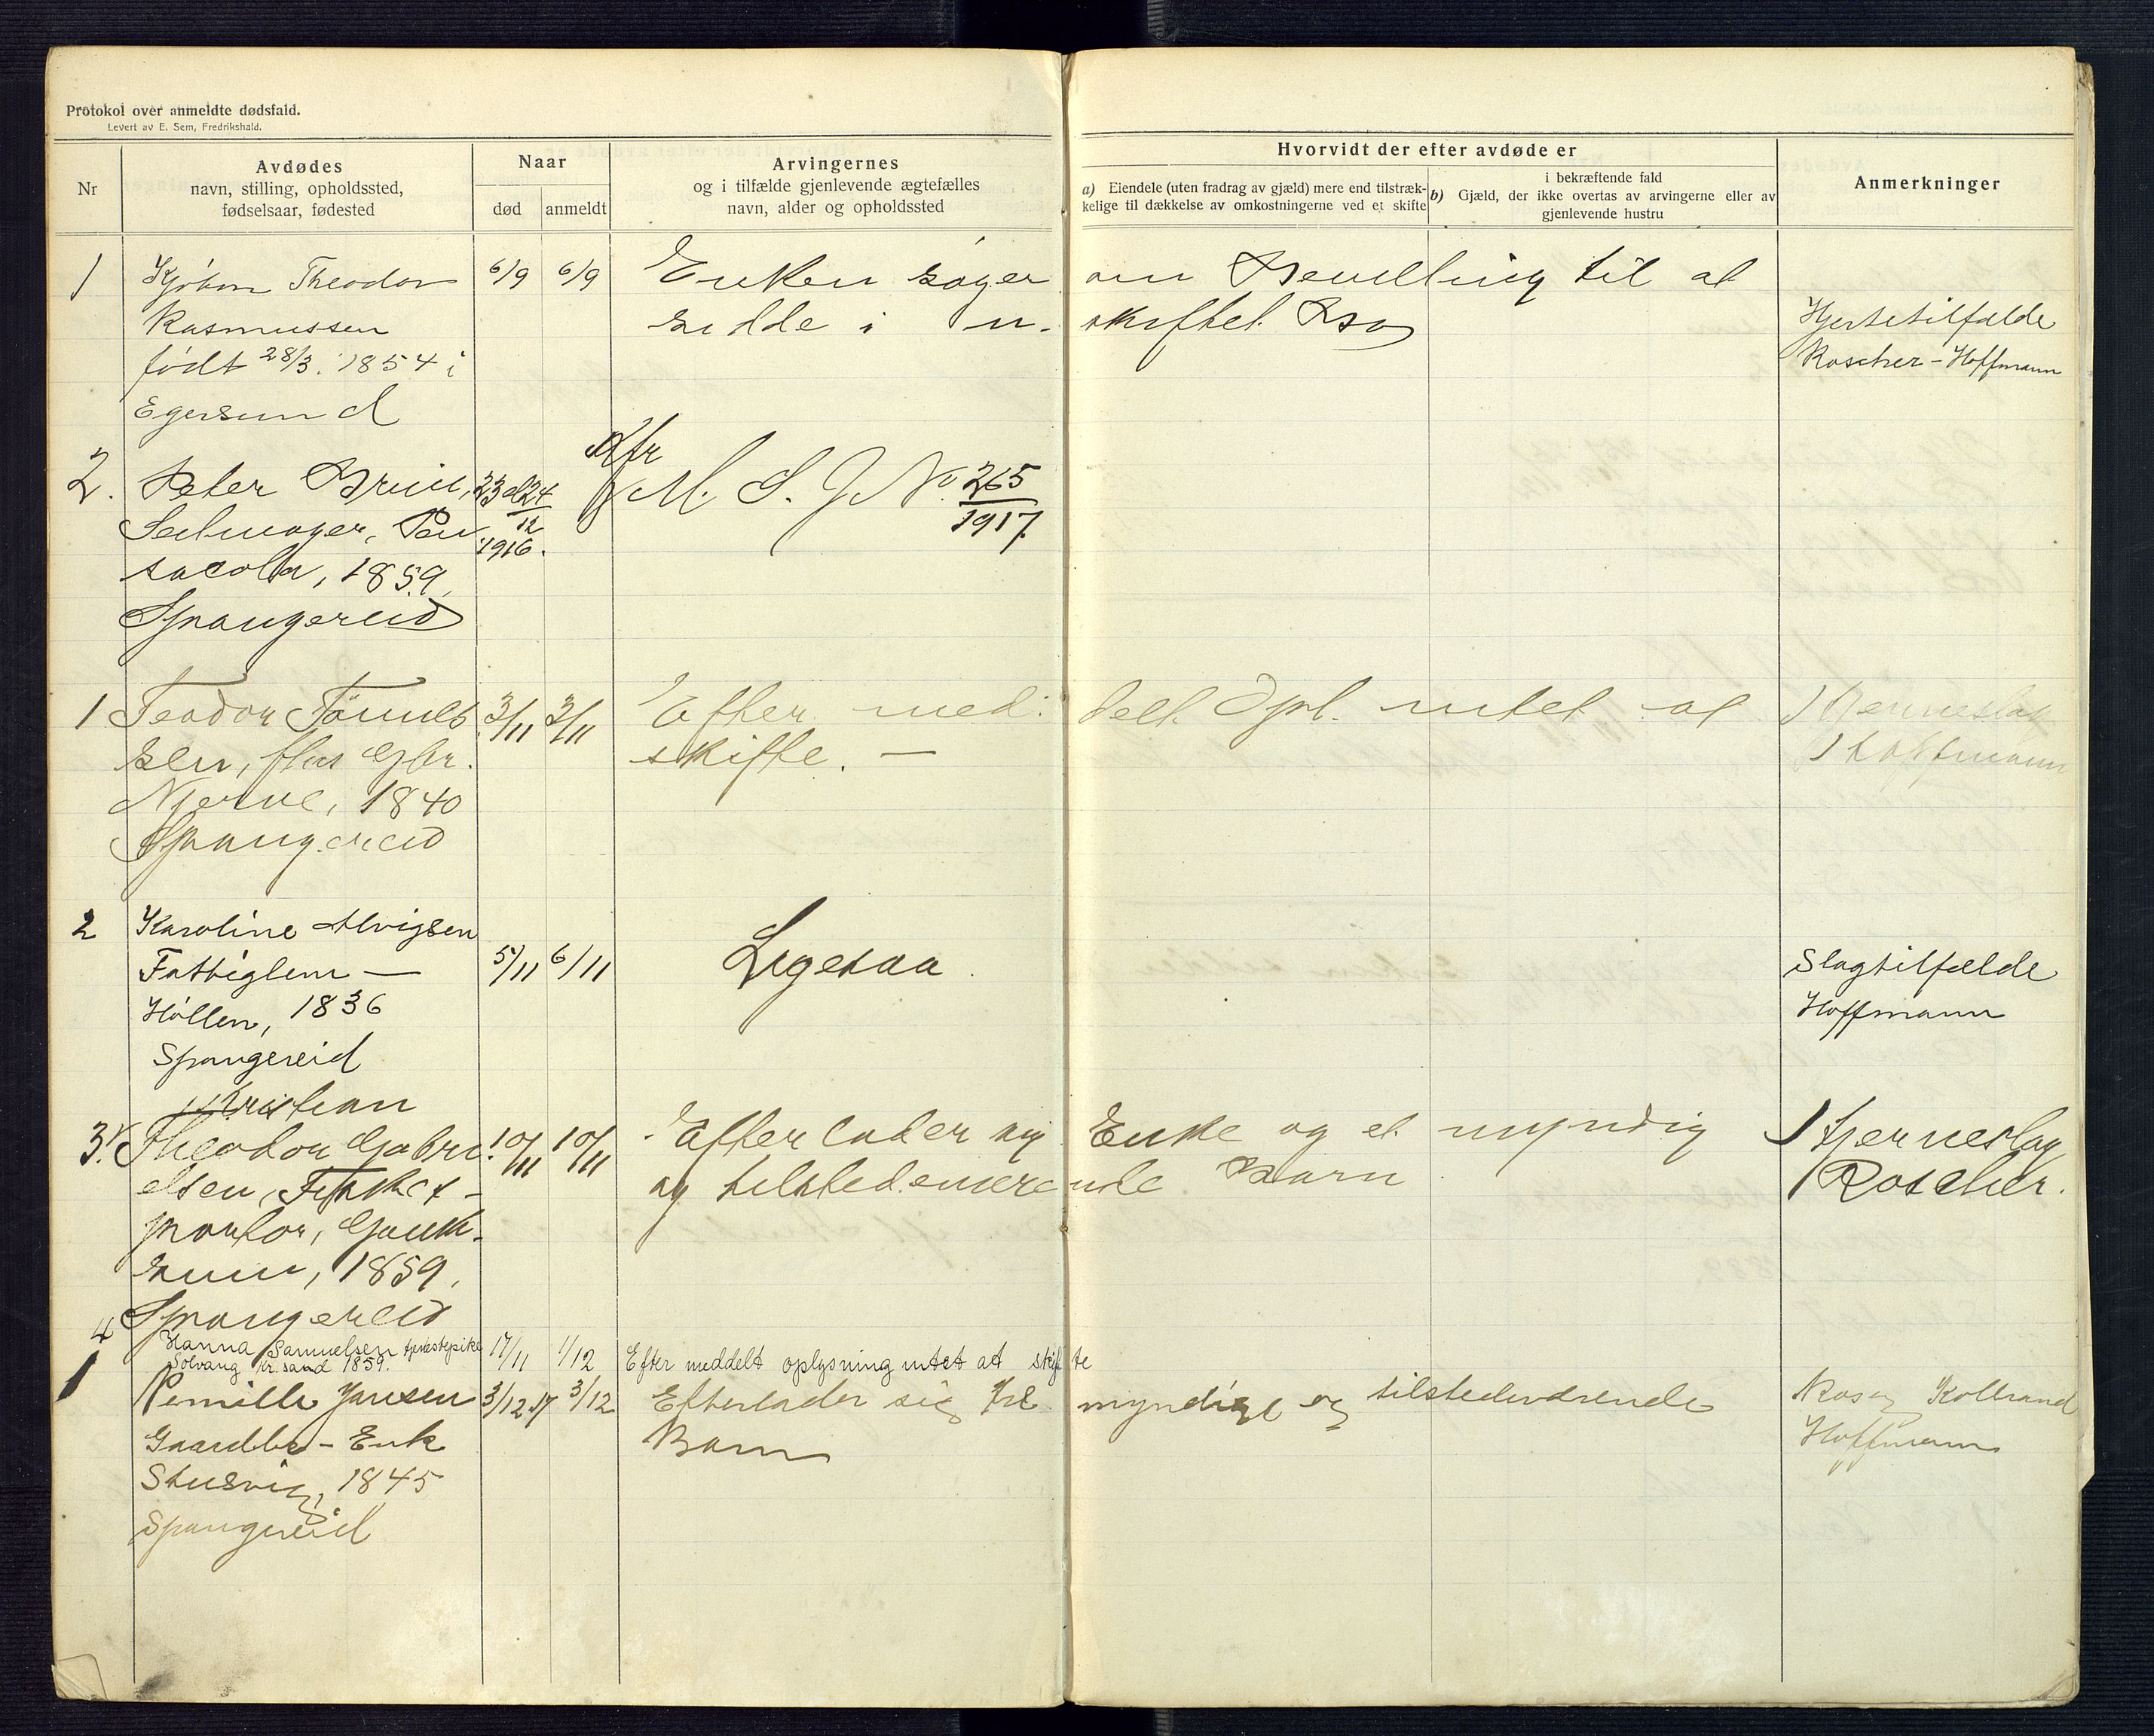 Protokol over anmeldte dødsfald.
Levert av E. Sem, Fredrikshald.
Nr
Avdødes
navn, stilling, opholdssted,
fødselsaar, fødested
Naar
død
anmeldt
Arvingernes
og i tilfælde gjenlevende ægtefælles
navn, alder og opholdssted
Hvorvidt der efter avdøde er
a) Eiendele (uten fradrag av gjæld) mere end tilstræk-
kelige til dækkelse av omkostningerne ved et skifte
i bekræftende fald
b) Gjæld, der ikke overtas av arvingerne eller av
gjenlevende hustru
Anmerkninger
1 Theodor 6/9 6/9 Enken søger om Bevilling til at
Rasmussen sidde i u- skiftet Bo
født 28/3. 1854 i
Egersund
Hjertetilfælde
Roscher-Hoffmann
2. Peter 23 el 24 Kfr M. S. J. No 265
12 1917.
1916.
Seilmager, Pen
sacola, 1859,
Spangereid
1 Teodor Tønnes 3/11 3/11 Efter med: delt Opl. intet at Hjerneslag
sen, Gbr. skifte. — Hoffmann
Njerve, 1840
Spangereid
2 Karoline Alvigsen
Fattiglem — 5/11 6/11 Ligesaa. Slagtilfælde
Høllen, 1836 Hoffmann
Spangereid
Kristian
3. Theodor Gabri 10/11 10/11 Efterlader sig Enke og et myndig Hjerneslag
elsen, Fiskex- og tilstedeværende Barn Roscher.
portør,
1859,
Spangereid
4 Hanna Samuelsen tjenestepike 17/11 1/12 Efter meddelt oplysning intet at skifte
Solvang Kr.sand 1859.
1 Pernille Jansen 3/12 17 3/12 Efterlader sig myndige og tilstedeværende
Gaardbr- Enke Barn Hoffmann
Stusvig, 1845
Spangereid